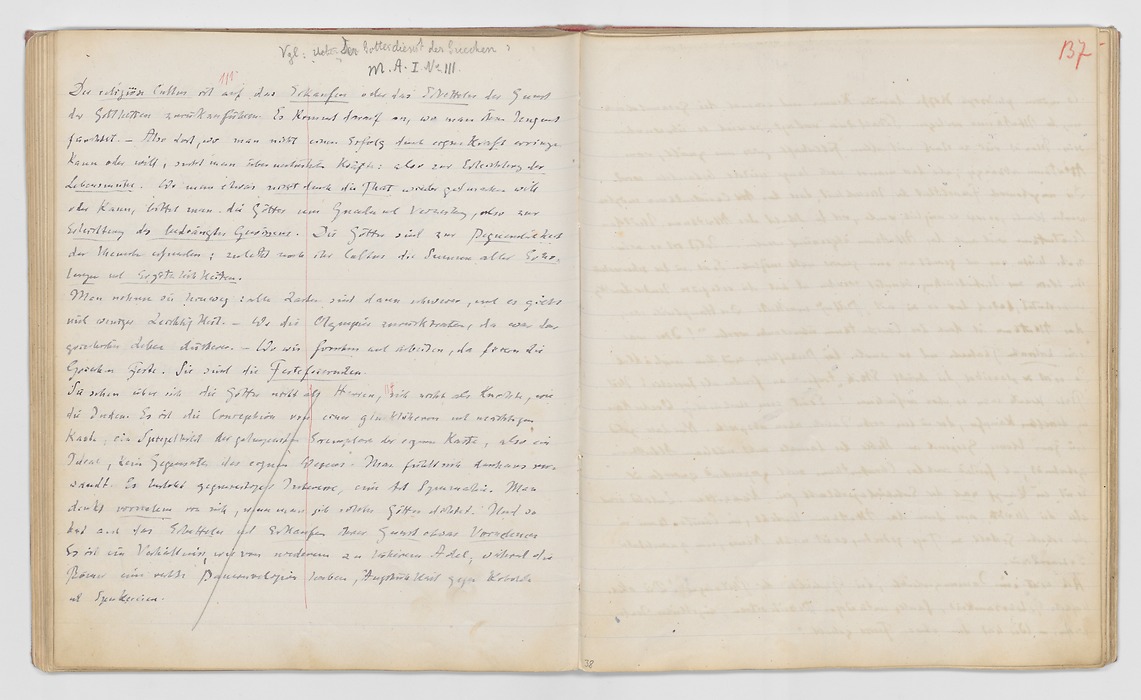 Vgl: Ueber Der Gottesdienst der Griechen
M. A. I № III.
137
111
Der religiöse Cultus ist auf das Erkaufen oder das Erbetteln der Gunst
der Gottheiten zurückzuführen. Es kommt darauf an, wo man ihre Ungunst
fürchtet. — Also dort, wo man nicht einen Erfolg durch eigne Kraft erringen
kann oder will, sucht man übernatürliche Kräfte: also zur Erleichterung der
Lebensmühe. Wo man etwas nicht durch die That wieder gutmachen will
oder kann, bittet man die Götter um Gnade und Verzeihung, also zur
Erleichterung des bedrängten Gewissens. Die Götter sind zur Bequemlichkeit
der Menschen erfunden: zuletzt noch ihr Cultus die Summe aller Erho-
lungen und Ergötzlichkeiten.
Man nehme sie hinweg: alle Lasten sind dann schwerer, und es giebt
viel weniger Leichtigkeit. — Wo die Olympier zurücktraten, da war das
griechische Leben düsterer. — Wo wir forschen und arbeiten, da feiern die
Griechen Feste. Sie sind die Festefeiernden.
Sie sehen über sich die Götter nicht als Herren, sich nicht als Knechte, wie
die Juden. Es ist die Conception von einer glücklicheren und mächtigeren
Kaste, ein Spiegelbild der gelungensten Exemplare der eignen Kaste, also ein
Ideal, kein Gegensatz des eignen Wesens. Man fühlt sich durchaus ver-
wandt. Es besteht gegenseitiges Interesse, eine Art Symmachie. Man
denkt vornehm von sich, wenn man sich solche Götter dichtet. Und so
hat auch das Erbetteln und Erkaufen ihrer Gunst etwas Vornehmes
Es ist ein Verhältniss, wie von niederem zu höherem Adel; während die
Römer eine rechte Bauernreligion haben, Ängstlichkeit gegen Kobolde
und Spukereien.
38